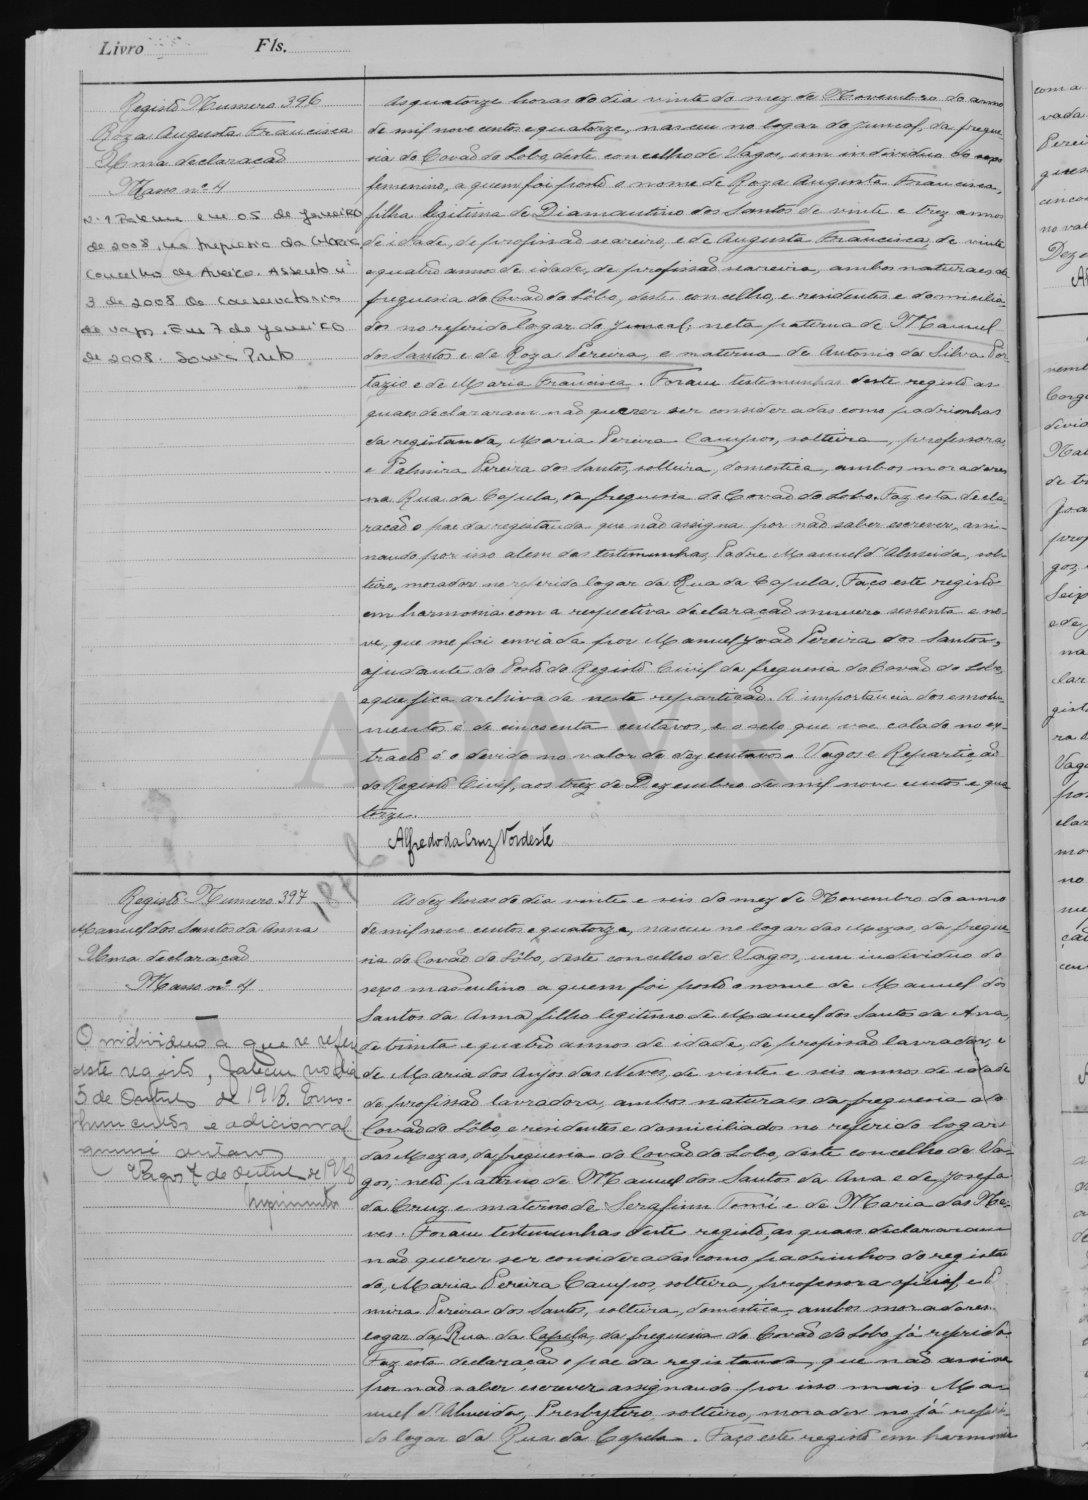 Livro Fls.
Registo Numero 396
Roza Augusta Francisca
Uma declaração
Masso nº 4
N.1 Faleceu em 05 de Janeiro
de 2008, na freguesia da Glória,
Concelho de Aveiro. Assento nº
3 de 2008 da Conservatória
de Vagos. Em 7 de Janeiro
de 2008.
As quatorze horas do dia vinte do mez de Novembro do anno
de mil nove centos e quatorze, nasceu no logar do Juncal, da fregue-
sia do Covão do Lobo, deste concelho de Vagos, um individuo do sexo
femenino, a quem foi posto o nome de Roza Augusta Francisca,
filha legitima de Diamantino dos Santos de vinte e trez annos
de idade, de profissão seareiro, e de Augusta Francisca, de vinte
e quatro annos de idade, de profissão seareira, ambos naturaes da
freguesia do Covão do Lôbo, deste concelho, e residentes e domicilia-
dos no referido logar do Juncal; neta paterna de Manuel
dos Santos e de Roza Pereira, e materna de Antonio da Silva Por-
tazio e de Maria Francisca. Foram testemunhas deste registo as
quaes declararam não querer ser consideradas como padrinhos
da registanda, Maria Pereira Campos, solteira, professora,
e Palmira Pereira dos Santos, solteira, domestica, ambos moradores
na Rua da Capela, da freguesia do Covão do Lobo. Faz esta decla-
ração o pae da registanda que não assigna por não saber escrever, assi-
nando por isso alem das testemunhas, Padre Manuel d'Almeida, sol-
teiro, morador no referido logar da Rua da Capela. Faço este registo
em harmonia com a respectiva declaração numero sessenta e no-
ve, que me foi enviada por Manuel João Pereira dos Santos,
ajudante do Posto do Registo Civil da freguesia do Covão do Lobo,
e que fica archivada nesta repartição. A importancia dos emolu-
mentos é de cincoenta centavos, e o selo que vae colado no ex-
tracto é o devido no valor de dez centavos. Vagos e Repartição
do Registo Civil, aos trez de Dezembro de mil nove centos e qua
torze.
Alfredo da Cruz Nordeste
Registo Numero 397
Manuel dos Santos da Anna
Uma declaração
Masso nº 4
O individuo a que se refere
este registo, faleceu no dia
5 de Outubro de 1918. Emo-
lumentos e adicional
quinze centavos
Vagos 7 de Outubro de 1918
As dez horas do dia vinte e seis do mez de Novembro do anno
de mil nove centos e quatorze, nasceu no logar das Mezas, da fregue-
sia do Covão do Lôbo, deste concelho de Vagos, um individuo do
sexo masculino a quem foi posto o nome de Manuel dos
Santos da Anna filho legitimo de Manuel dos Santos da Ana,
de trinta e quatro annos de idade, de profissão lavrador, e
de Maria dos Anjos das Neves, de vinte e seis annos de idade
de profissão lavradora, ambos naturaes da freguesia do
Covão do Lôbo, e residentes e domiciliados no referido logar
das Mezas, da freguesia do Covão do Lobo, deste concelho de Va-
gos; neto paterno de Manuel dos Santos da Ana e de Josefa
da Cruz e materno de Serafim Tomé e de Maria das Ne-
ves. Foram testemunhas deste registo, as quaes declararam
não querer ser consideradas como padrinhos do registan
do, Maria Pereira Campos, solteira, professora oficial, e P
mira Pereira dos Santos, solteira, domestica, ambos moradores
logar da Rua da Capela, da freguesia do Covão do Lobo já referido.
Faz esta declaração o pae da registanda, que não assina
por não saber escrever assignando por isso mais Ma-
nuel d'Almeida, Presbytero, solteiro, morador no já referi-
do logar da Rua da Capela. Faço este registo em harmonia